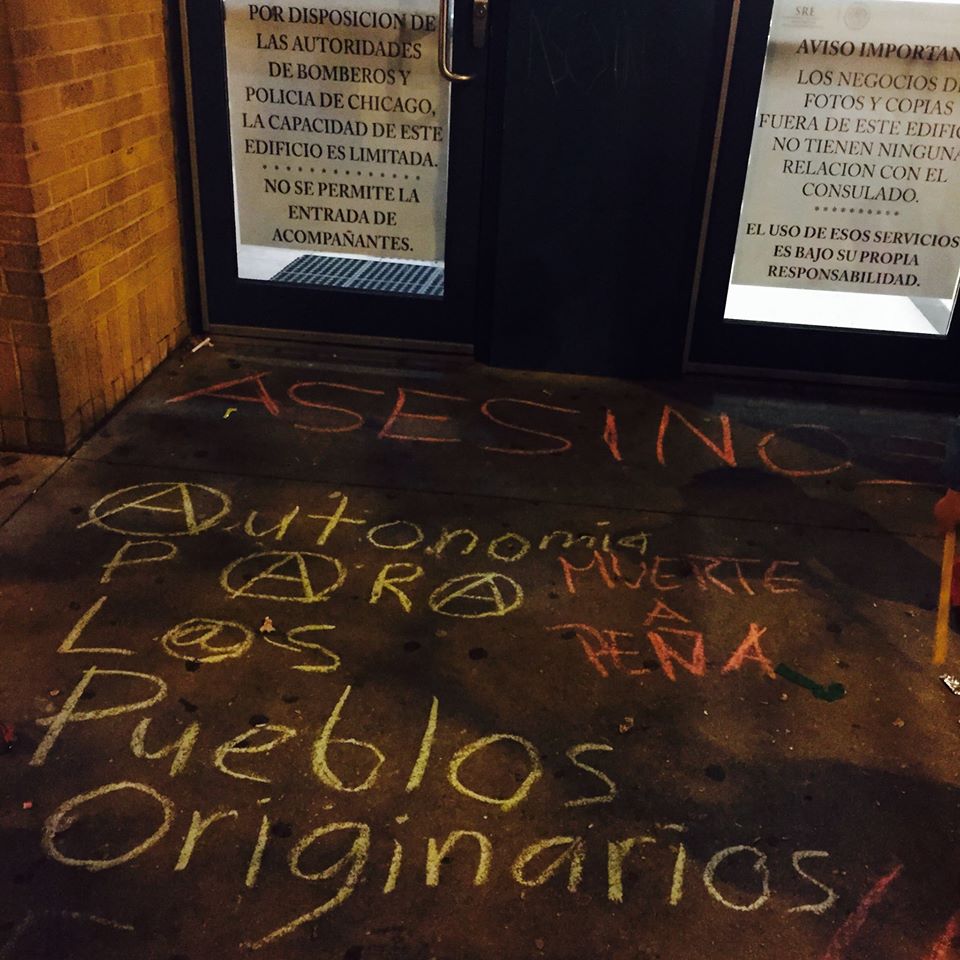 POR DISPOSICION DE
LAS AUTORIDADES
DE BOMBEROS Y
POLICIA DE CHICAGO,
LA CAPACIDAD DE ESTE
EDIFICIO ES LIMITADA.
NO SE PERMITE LA
ENTRADA DE
ACOMPAÑANTES.
SRE
AVISO IMPORTAN
LOS NEGOCIOS D
FOTOS Y COPIAS
FUERA DE ESTE EDIFIC
NO TIENEN NINGUNA
RELACION CON EL
CONSULADO.
EL USO DE ESOS SERVICIOS
ES BAJO SU PROPIA
RESPONSABILIDAD.
ASESINO
Autonomia
PARA
L@S
Pueblos
Originarios
MUERTE
A
PEÑA